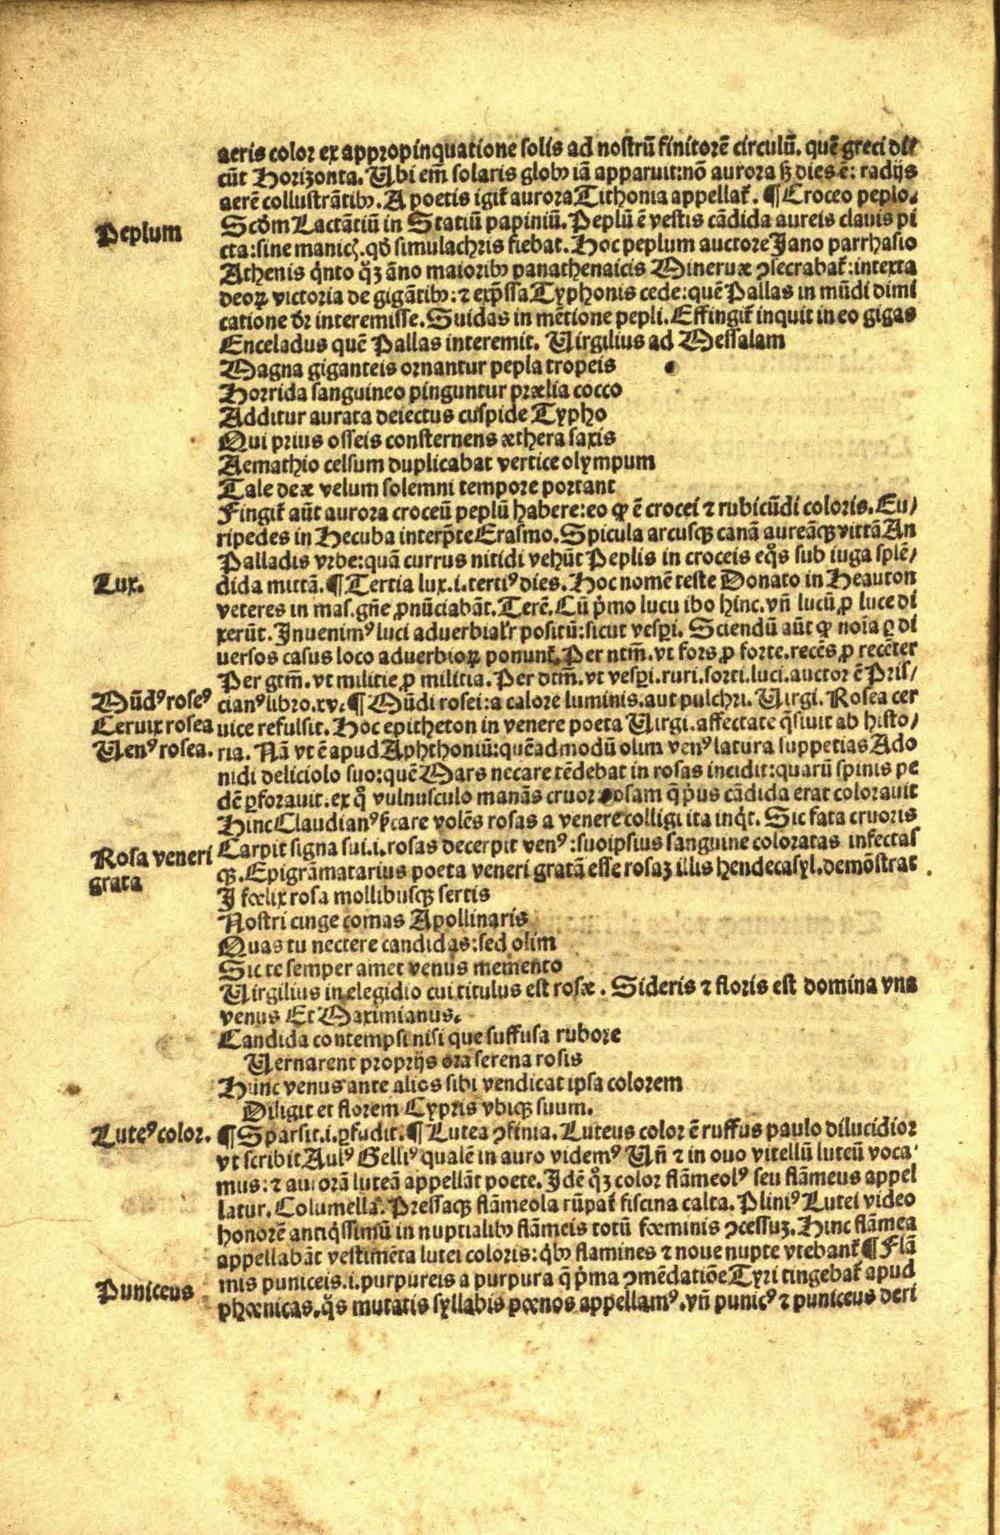 aeris color ex appropinquatione solis ad nostrū finitorē circulū. quē greci di
cūt Horizonta. Ubi em̄ solaris globꝰ iā apparuit: nō aurora sꝫ dies ē: radijs
aerē collustrātibꝰ. A poetis igit᷑ aurora Tithonia appellat᷑. ¶ Croceo peplo.
Peplum
Scd̄m Lactātiū in Statiū papiniū. Peplū ē vestis cādida aureis clauis pi
cta: sine manicꝭ. qd̄ simulachris fiebat. Hoc peplum auctore Jano parrhasio
Athenis q̇nto qꝫ āno maioribꝰ panathenaicis Mineruæ ꝯsecrabat᷑: intexta
deoꝝ victoria de gigātibꝰ: ⁊ exp̄ssa Typhonis cede: quē Pallas in mūdi dimi
catione dr̄ interemisse. Suidas in mētione pepli. Effingit᷑ inquit in eo gigas
Enceladus quē Pallas interemit. Virgilius ad Messalam
Magna giganteis ornantur pepla tropeis
Horrida sanguineo pinguntur prælia cocco
Additur aurata deiectus cuspide Typho
Qui prius osseis consternens æthera saxis
Aemathio celsum duplicabat vertice olympum
Tale deæ velum solemni tempore portant
Fingit᷑ aūt aurora croceū peplū habere: eo ꝙ ē crocei ⁊ rubicūdi coloris. Eu/
ripedes in Hecuba interp̄te Erasmo. Spicula arcusqꝫ canā aureāqꝫ vittā An
Palladis vrbe: quā currus nitidi vehūt Peplis in croceis eq̊s sub iuga splē/
Lux.
dida mittā. ¶ Tertia lux. i. tertiꝰ dies. Hoc nomē teste Donato in Heauton
veteres in mas. gn̄e ꝓnūciabāt. Terē. Cū p̄mo lucu ibo hinc. vn̄ lucū ꝓ luce di
xerūt. Inuenimꝰ luci aduerbialr̄ positū: sicut vesꝑi. Sciendū aūt ꝙ noīa ꝑ di
uersos casus loco aduerbioꝝ ponunt᷑. Per ntm̄. vt fors ꝓ forte. recēs ꝓ recēter
Per gtm̄. vt militie ꝓ militia. Per dtm̄. vt vesꝑi. ruri. sorti. luci. auctor ē Pris/
Mūdꝰ roseꝰ
cianꝰ libro. xv. ¶ Mūdi rosei: a calore luminis. aut pulchri. Virgi. Rosea cer
Ceruix rosea
uice refulsit. Hoc epitheton in venere poeta Virgi. affectate q̄siuit ab histo/
Venꝰ rosea.
ria. Nā vt ē apud Aphthoniū: quēadmodū olim venꝰ latura suppetias Ado
nidi deliciolo suo: quē Mars necare tēdebat in rosas incidit: quarū spinis pe
dē ꝑforauit. ex q̊ vulnusculo manās cruor rosam q̄ p̄us cādida erat colorauit
Hinc Claudianꝰ volēs rosas a venere colligi ita inq̇t. Sic fata cruoris
Carpit signa sui. i. rosas decerpit venꝰ: suoipsius sanguine coloratas infectas
Rosa veneri
grata
qꝫ. Epigrāmatarius poeta veneri gratā esse rosaꝫ illis hendecasyl. demōstrat
I fœlix rosa mollibusqꝫ sertis
Nostri cinge comas Apollinaris
Quas tu nectere candidas: sed olim
Sic te semper amet venus memento
Virgilius in elegidio cui titulus est rosæ. Sideris ⁊ floris est domina vna
venus Et Maximianus.
Candida contempsi nisi que suffusa rubore
Vernarent proprijs ora serena rosis
Hunc venus ante alios sibi vendicat ipsa colorem
Diligit et florem Cypris vbiqꝫ suum.
Luteꝰ color.
¶ Sparsit. i. ꝑfudit. ¶ Lutea ꝯfinia. Luteus color ē ruffus paulo dilucidior
vt scribit Aulꝰ Gelliꝰ qualē in auro videmꝰ Vn̄ ⁊ in ouo vitellū luteū voca
mus: ⁊ aurorā luteā appellāt poete. Idē qꝫ color flāmeolꝰ seu flāmeus appel
latur. Columella. Pressaqꝫ flāmeola rūpat᷑ fiscina calta. Pliniꝰ Lutei video
honorē antiq̇ssimū in nuptialibꝰ flāmeis totū fœminis ꝯcessuꝫ. Hinc flāmea
appellabāt vestimēta lutei coloris: q̇bꝰ flamines ⁊ noue nupte vtebant᷑ ¶ Flā
Puniceus
mis puniceis. i. purpureis a purpura q̄ p̄ma ꝯmēdatiōe Tyri tingebat᷑ apud
phœnicas. q̊s mutatis syllabis pœnos appellamꝰ. vn̄ punicꝰ ⁊ puniceus deri